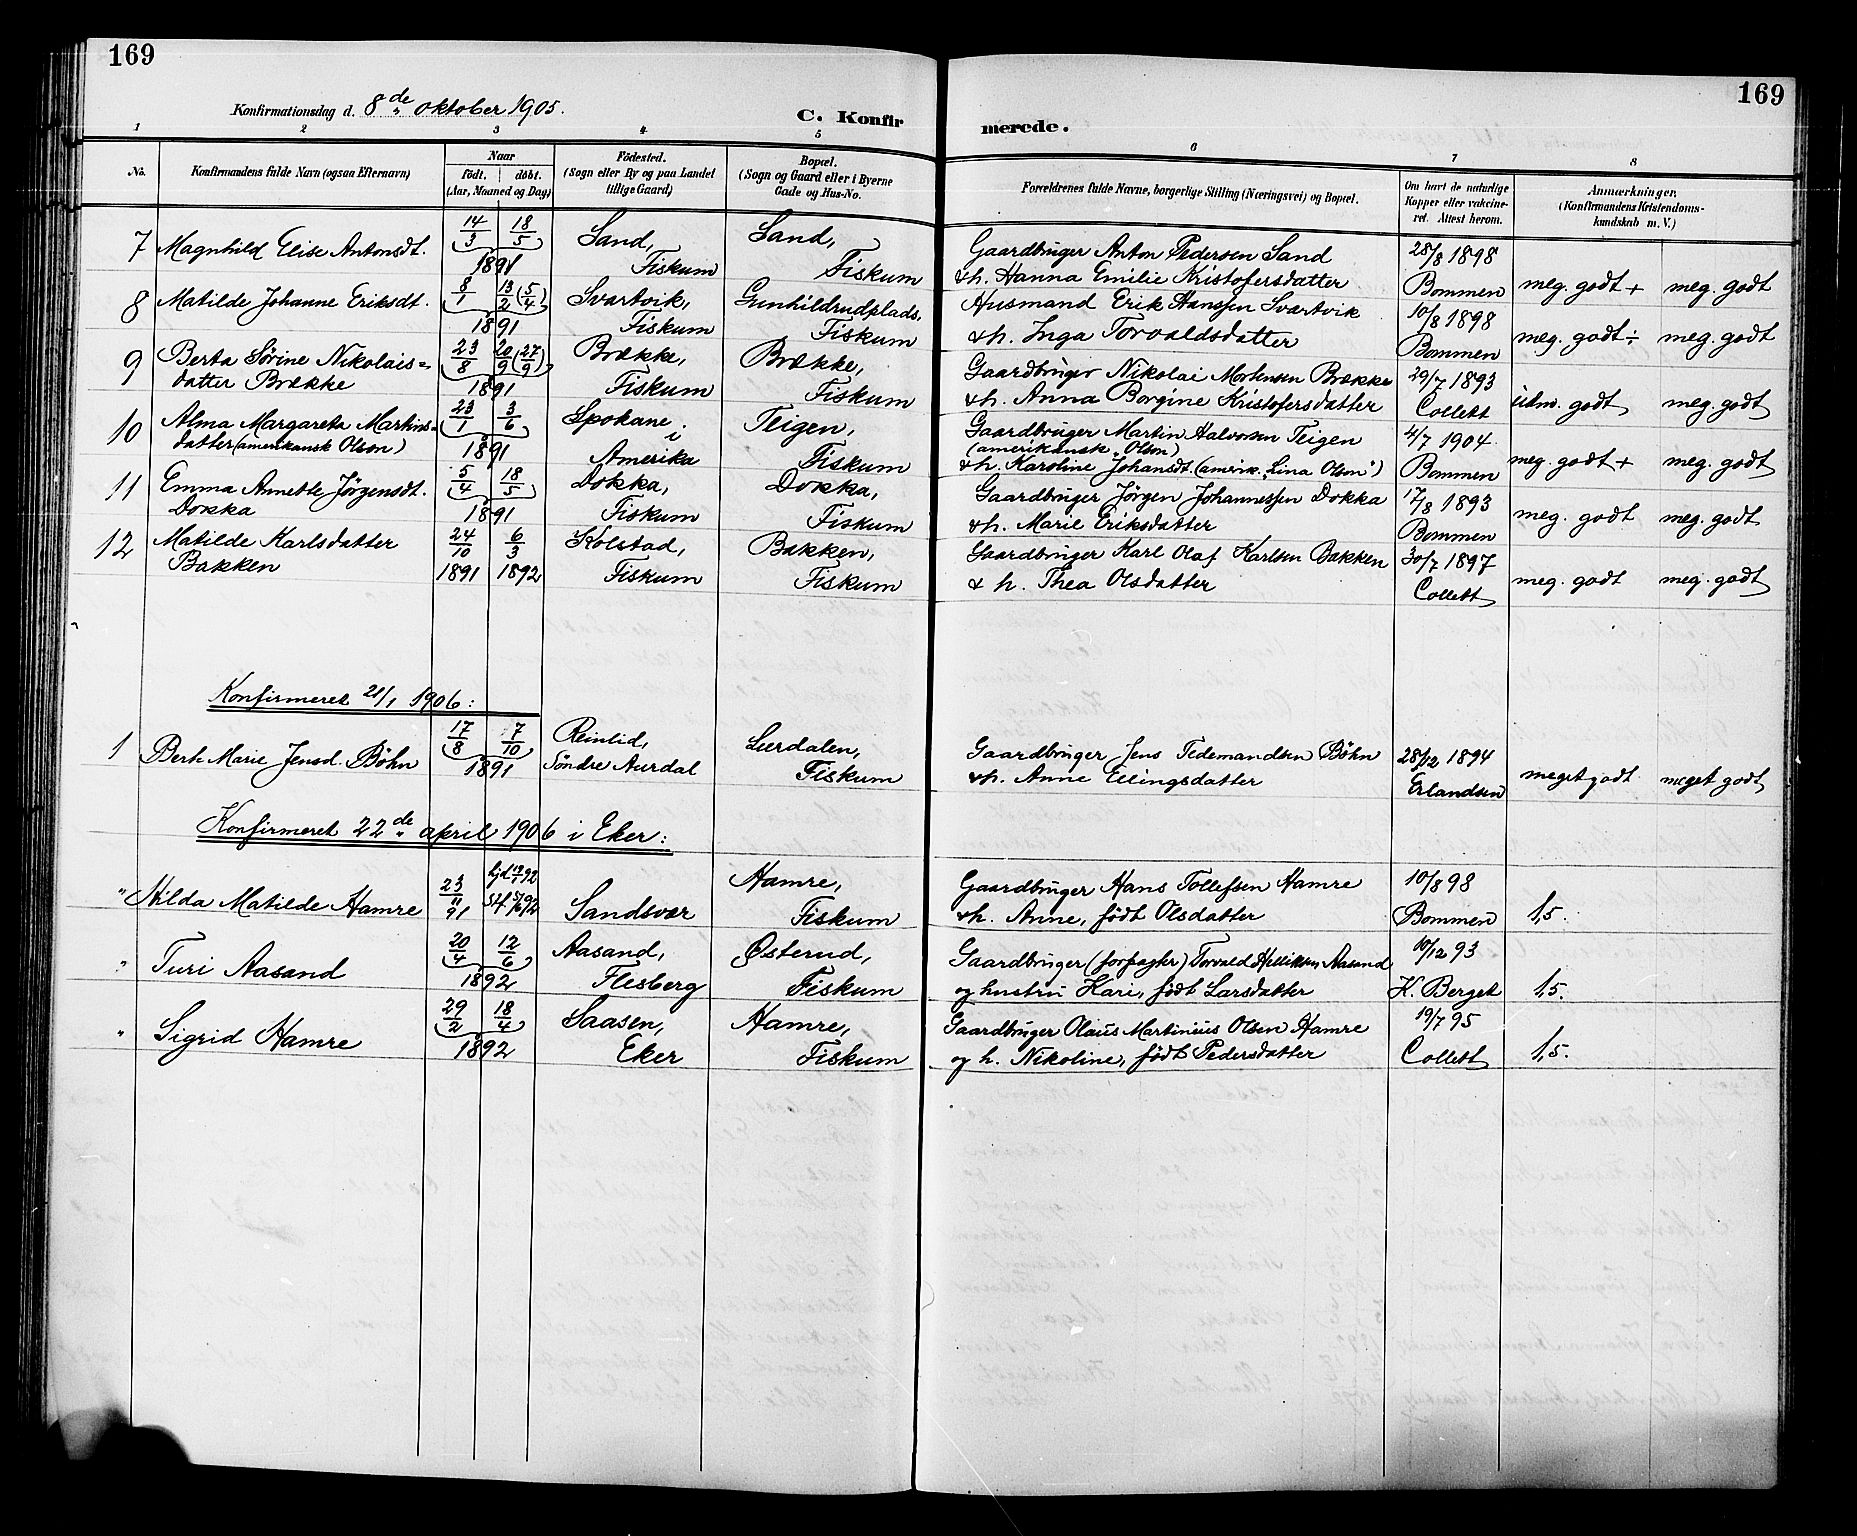 169
169
Konfirmationsdag d. 8de oktober 1905.
C. Konfirmerede.
1 2 3 4 5 6 7 8
No.
Konfirmandens fulde Navn (ogsaa Efternavn)
Naar
födt. döbt.
(Aar, Maaned og Dag)
Födested.
(Sogn eller By og paa Landet
tillige Gaard)
Bopæl.
(Sogn og Gaard eller i Byerne
Gade og Hus-No.
Forældrenes fulde Navne, borgerlige Stilling (Næringsvei) og Bopæl.
Om havt de naturlige
Kopper eller vakcine-
ret. Attest herom.
Anmærkninger.
(Konfirmandens Kristendoms-
kundskab m. V.)
7 Magnhild Elise Antonsdt. 14/3 18/5 1891 Sand, Fiskum Sand, Fiskum
Gaardbruger Anton Pedersen Sand
& h. Hanna Emilie Kristofersdatter 28/8 1898 Bommen meg. godt + meg. godt
8 Matilde Johanne Eriksdt. 8/1 13/2 (5/4) 1891 Svartvik, Fiskum Gunhildrudplads, Fiskum
Husmand Erik Hanssen Svartvik
& h. Inga Torvaldsdatter 10/8 1898 Bommen meg. godt ÷ meg. godt
9 Berta Sörine Nikolais=
datter Brække 23/8 20/9 (27/9) 1891 Brække, Fiskum Brække, Fiskum
Gaardbruger Nikolai Mortensen Brække
& h. Anna Borgine Kristofersdatter 29/7 1893 Collett udm. godt meg. godt
10 Alma Margareta Martins=
datter (amerikansk Olson) 23/1 3/6 1891 Spokane i Amerika Teigen, Fiskum
Gaardbruger Martin Halvorsen Teigen
(amerikansk "Olson)
& h. Karoline Johansdt. (amerik. "Lina Olson") 4/7 1904 Bommen meg. godt + meg. godt
11 Emma Annette Jörgensdt.
Dokka 5/4 18/5 1891 Dokka, Fiskum Dokka, Fiskum
Gaardbruger Jörgen Johannessen Dokka
& h. Marie Eriksdatter 17/8 1893 Bommen meg. godt meg. godt
12 Matilde Karlsdatter
Bakken 24/10 1891 6/3 1892 Kolstad, Fiskum Bakken, Fiskum
Gaardbruger Karl Olaf Karlsen Bakken
& h. Thea Olsdatter 30/7 1897 Collett meg. godt meg. godt
Konfirmeret 21/1 1906:
1 Berte Marie Jensd. Böhn 17/8 7/10 1891 Reinlid, Söndre Aurdal Lerdalen, Fiskum
Gaardbruger Jens Tedemandsen Böhn
& h. Anne Ellingsdatter 28/12 1894 Erlandsen meget godt meget godt
Konfirmeret 22de april 1906 i Eker:
" Hilda Matilde Hamre 23/11 91 Sandsvær Hamre, Fiskum
Gaardbruger Hans Tollefsen Hamre
& h. Anne, født Olsdatter 10/8 98 Bommen 1,5.
" Turi Aasand 20/4 12/6 1892 Aasand, Flesberg Østerud, Fiskum
Gaardbruger (forpagter) Torvald Helliksen Aasand
og hustru Kari, født Larsdatter 10/12 93 K. Berget 1,5.
" Sigrid Hamre 29/2 18/4 1892 Saasen, Eker Hamre, Fiskum
Gaardbruger Olaus Martinius Olsen Hamre
og h. Nikoline, født Pedersdatter 19/7 95 Collett 1,5.